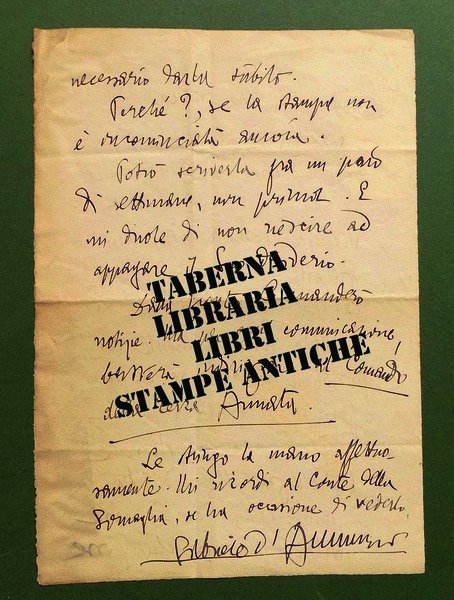 necessario darla subito.
Perché?, se la stampa non
è incominciata ancora.
Potrò scriverla fra un paio
di settimane, non prima. E
mi duole di non riescire ad
appagare
TABERNA
LIBRARIA
LIBRI
STAMPE ANTICHE
manderò
notizie. comunicazione,
basterà al Comando
della terza Armata.
Le stringo la mano affettuo-
samente. Mi ricordi al Conte della
Somaglia, se ha occasione di vederlo.
Gabriele d'Annunzio